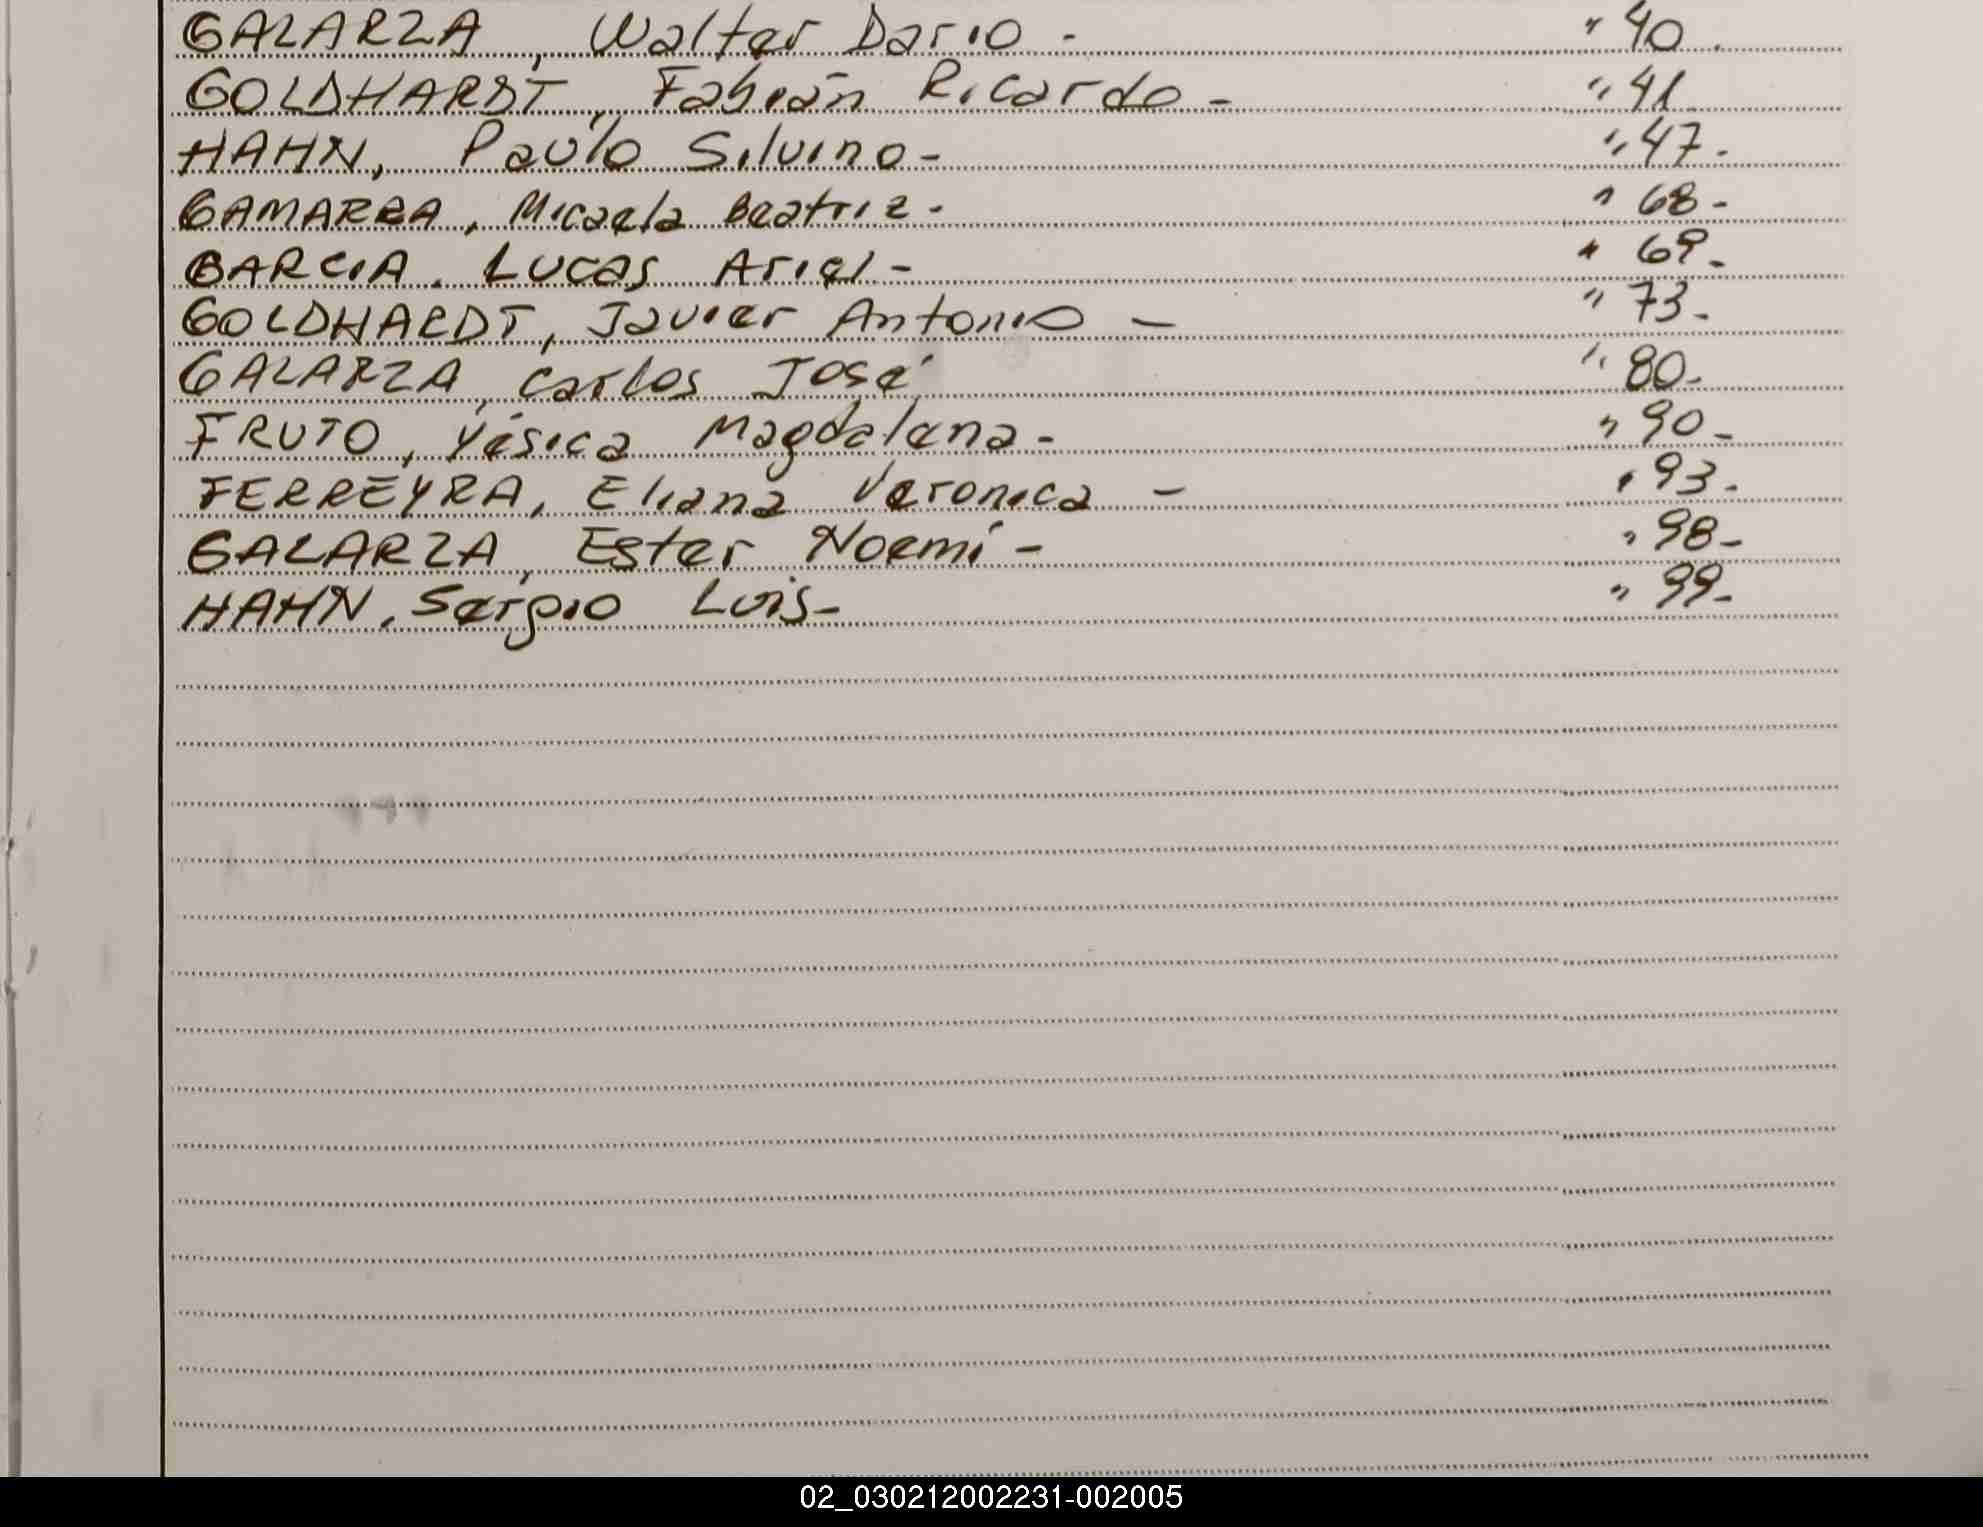 GALARZA, Walter Dario - " 40.
GOLDHARDT, Fabián Ricardo - " 41
HAHN, Paulo Silvino - " 47.
GAMARRA, Micaela Beatriz - " 68-
GARCIA, Lucas Ariel - " 69-
GOLDHARDT, Javier Antonio - " 73-
GALARZA, Carlos José " 80-
FRUTO, Yésica Magdalena - " 90-
FERREYRA, Eliana Veronica - " 93-
GALARZA, Ester Noemí - " 98-
HAHN, Sergio Luis - " 99-
02_030212002231-002005